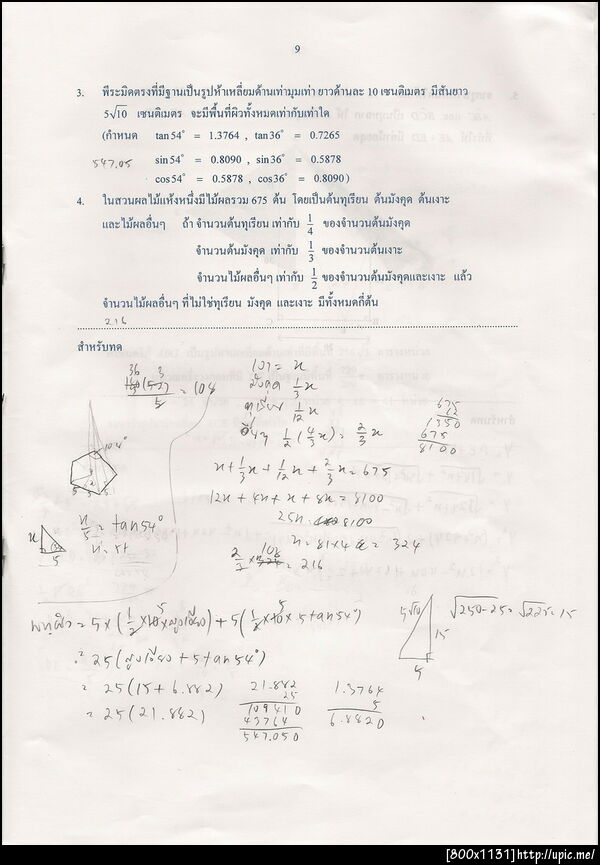 9
3. พีระมิดตรงที่มีฐานเป็นรูปห้าเหลี่ยมด้านเท่ามุมเท่า ยาวด้านละ 10 เซนติเมตร มีสันยาว
5√10 เซนติเมตร จะมีพื้นที่ผิวทั้งหมดเท่ากับเท่าใด
(กำหนด tan54° = 1.3764 , tan36° = 0.7265
547.05 sin54° = 0.8090 , sin36° = 0.5878
cos54° = 0.5878 , cos36° = 0.8090)
4. ในสวนผลไม้แห่งหนึ่งมีไม้ผลรวม 675 ต้น โดยเป็นต้นทุเรียน ต้นมังคุด ต้นเงาะ
และไม้ผลอื่นๆ ถ้า จำนวนต้นทุเรียน เท่ากับ 1/4 ของจำนวนต้นมังคุด
จำนวนต้นมังคุด เท่ากับ 1/3 ของจำนวนต้นเงาะ
จำนวนไม้ผลอื่นๆ เท่ากับ 1/2 ของจำนวนต้นมังคุดและเงาะ แล้ว
จำนวนไม้ผลอื่นๆ ที่ไม่ใช่ทุเรียน มังคุด และเงาะ มีทั้งหมดกี่ต้น
216
สำหรับทด
เงาะ = x
มังคุด 1/3 x
ทุเรียน 1/12 x
1/2 (4/3 x) = 2/3 x
= 108
675
12
1350
675
8100
x + 1/3 x + 1/12 x + 2/3 x = 675
12x + 4x + x + 8x = 8100
25x = 8100
x = 81×4 = 324
= 216
108°
x/5 = tan54°
พทผิว = 5 × (1/2 × 10 × สูงเอียง) + 5 (1/2 × 10 × 5 tan54°)
= 25 (สูงเอียง + 5 tan54°)
= 25 (15 + 6.882)
= 25 (21.882)
21.882
25
109410
43764
547.050
1.3764
5
6.8820
5√10
15
5
√250-25 = √225 = 15
[800x1131]http://upic.me/